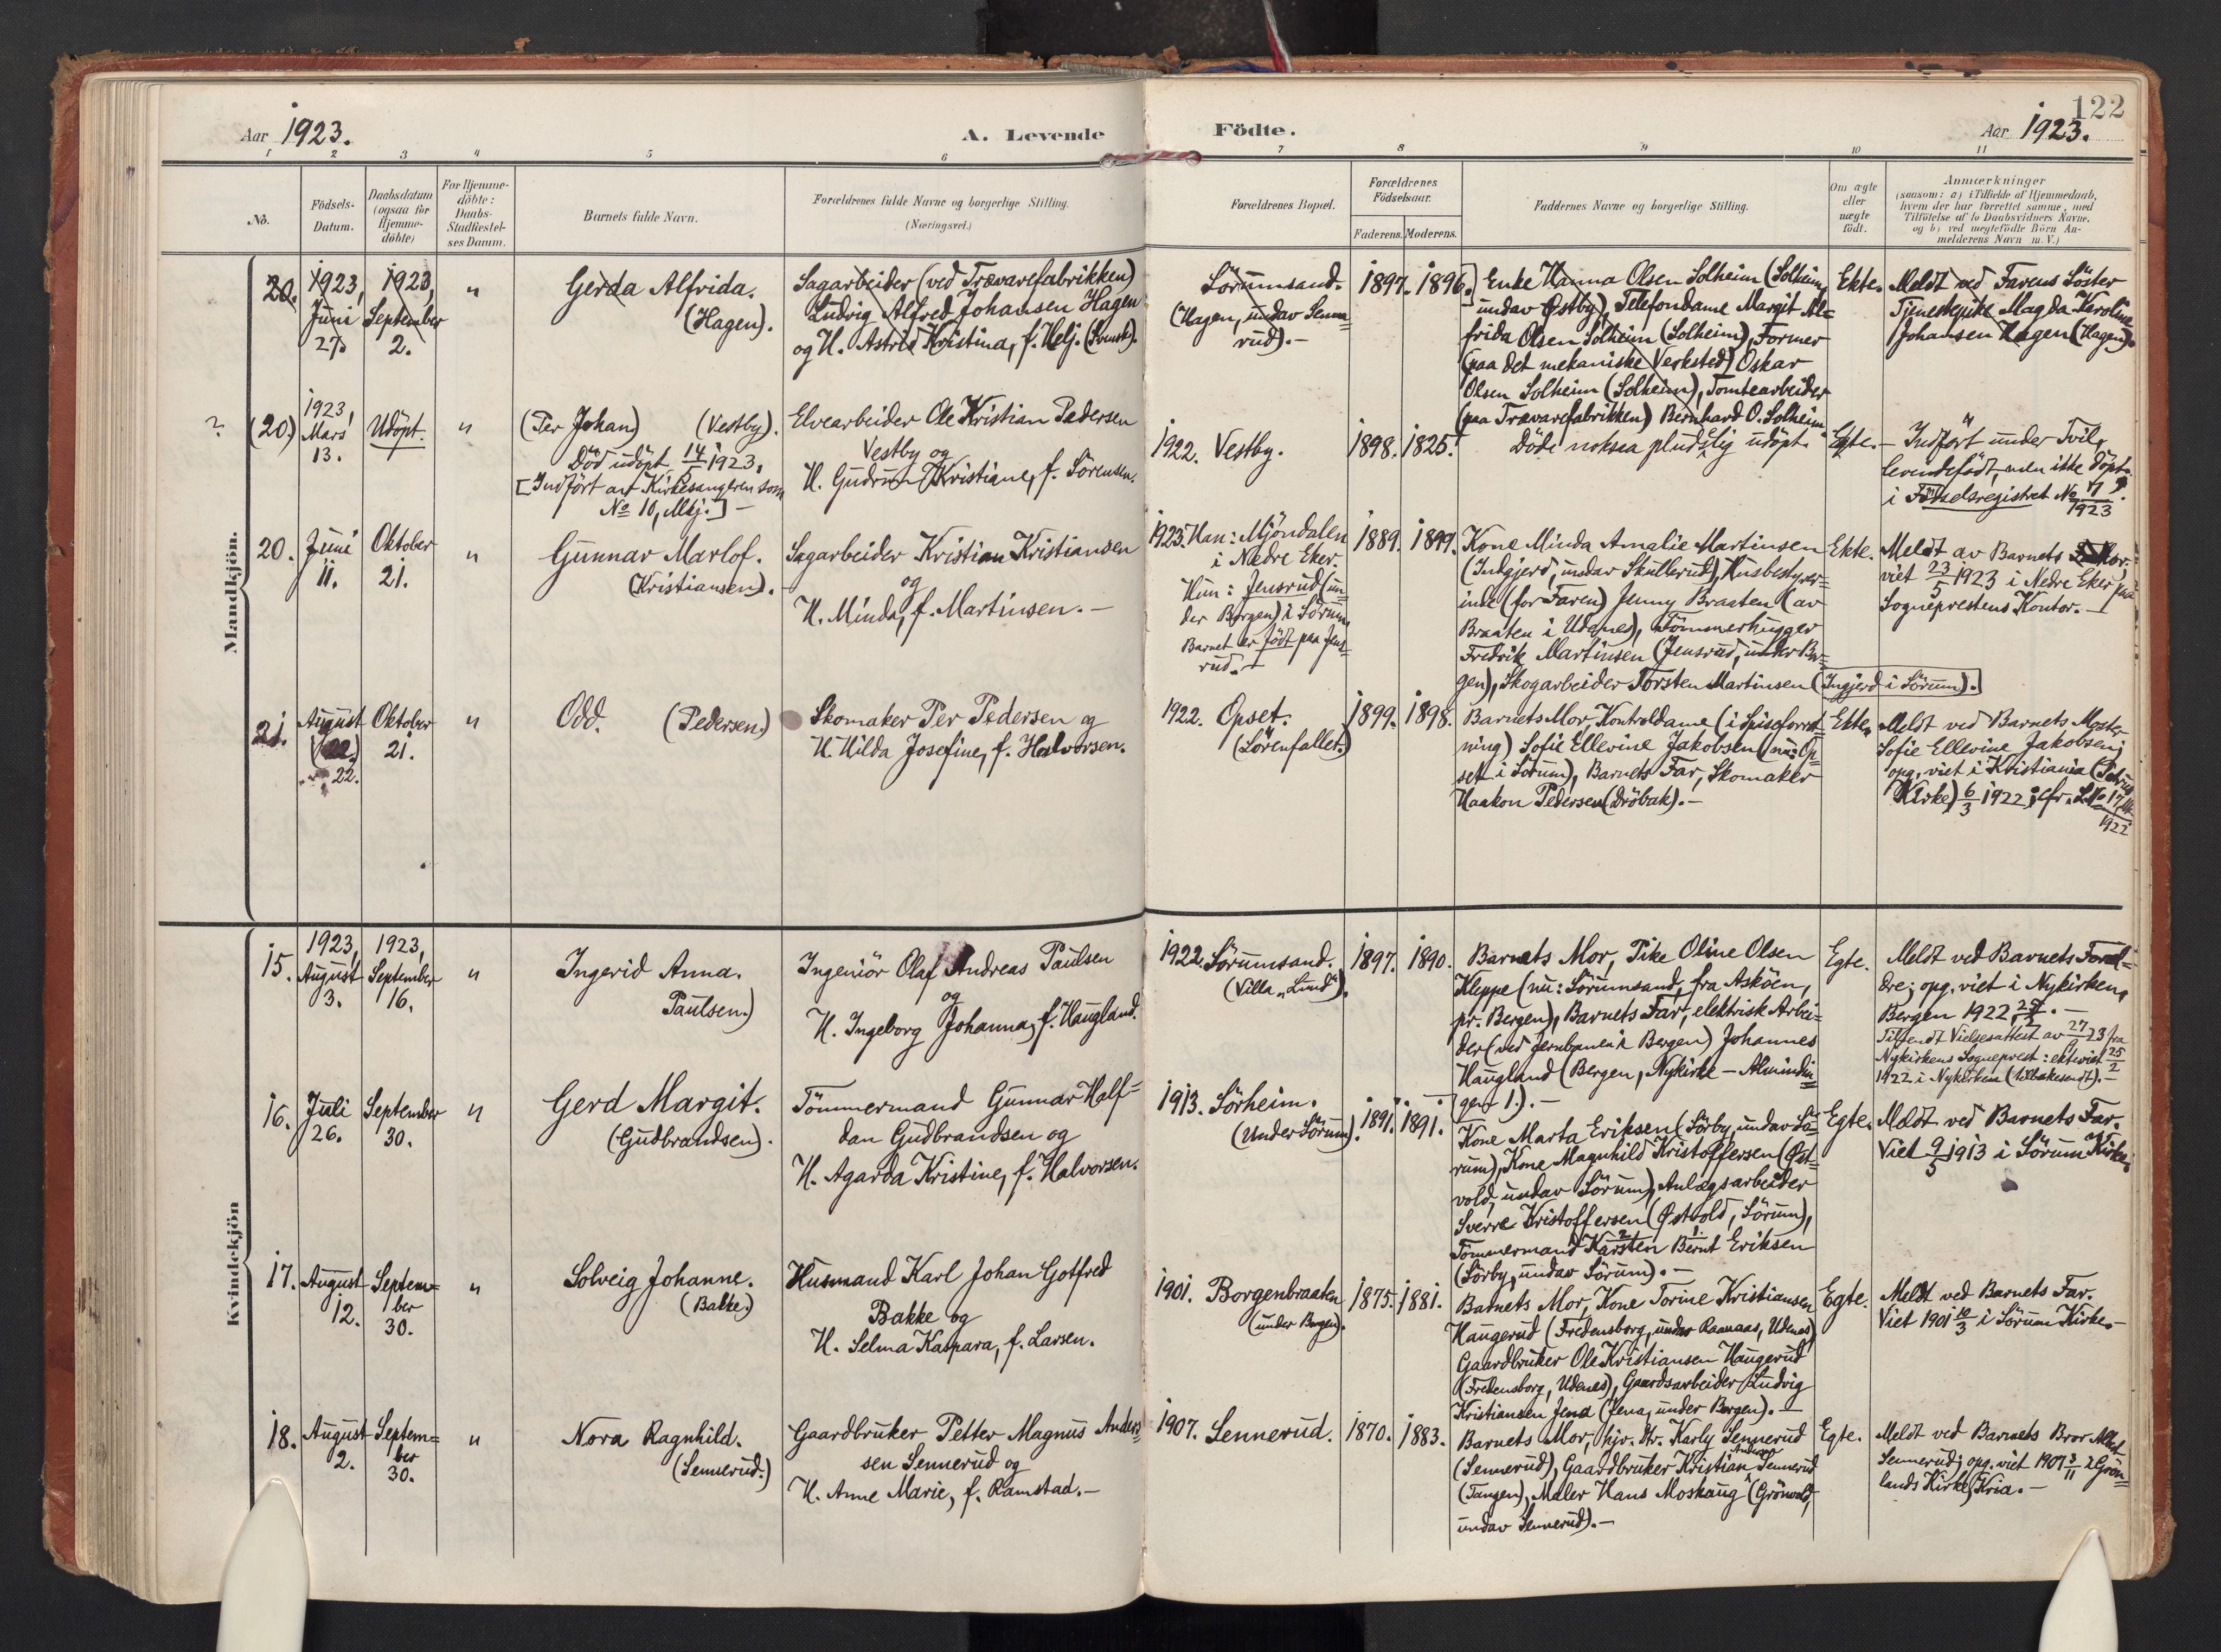 122
Aar 1923.
A. Levende
Födte.
Aar 1923.
1 2 3 4 5 6 7 8 9 10 11
No.
Födsels-
Datum.
Daabsdatum
(ogsaa for
Hjemme-
döbte)
For Hjemme-
döbte:
Daabs-
Stadfæstel-
ses Datum.
Barnets fulde Navn.
Forældrenes fulde Navne og borgerlige Stilling.
(Næringsvei.)
Forældrenes Bopæl.
Forældrenes
Födselsaar.
Faderens. Moderens.
Faddernes Navne og borgerlige Stilling.
Om ægte
eller
uægte
födt.
Anmærkninger
(saasom: a) i Tilfælde af Hjemmedaab,
hvem der har forrettet samme, med
Tilföielse af to Daabsvidners Navne,
og b) ved uegtefödte Börn An-
melderens Navn m. V.)
Mandkjön.
20.
1923,
Juni
27.
1923,
September
2.
"
Gerda Alfrida.
(Hagen).
Sagarbeider (ved Trævarefabrikken)
Ludvig Alfred Johansen Hagen
og H. Astrid Kristina, f. Helj. (Svensk).
Sörumsand.
(Hagen, undav Senne=
rud). —
1897.
1896.
Enke Hanna Olsen Solheim (Solheim,
undav Østby), Telefondame Margit Al=
frida Olsen Solheim (Solheim), Former
(paa det mekaniske Verksted) Oskar
Olsen Solheim (Solheim), Tomtearbeider
(paa Trævarefabrikken) Bernhard O. Solheim.
Ekte.
Meldt ved Farens Söster
Tjenestepike Magda Karoline
Johansen Hagen (Hagen).
?
(20.)
1923,
Mars
13.
Udöpt.
"
(Per Johan) (Vestby).
Död udöpt 14/5 1923,
[Indfört av Kirkesangeren som
No 10, Mkj.] —
Elvearbeider Ole Kristian Pedersen
Vestby og
H. Gudrun Kristiane, f. Sörensen.
1922. Vestby.
1898.
1825.
Döde noksaa pludselig udöpt.
Egte.
— Indfört under Tvil,
levendefödt, men ikke döpt.
i Födselsregistret No
1923
20.
Juni
11.
Oktober
21.
"
Gunnar Marlof.
(Kristiansen).
Sagarbeider Kristian Kristiansen
og
H. Minda, f. Martinsen. —
1923. Han: Mjöndalen
i Nedre Eker.
Hun: Jensrud (un=
der Borgen) i Sörum.
Barnet er födt paa Jens=
rud. —
1889.
1899.
Kone Minda Amalie Martinsen
(Indgjerd, undav Skullerud), Husbestyrer=
inde (for Faren) Jenny Braaten (av
Braaten i Udenes), Tömmerhugger
Fredrik Martinsen (Jensrud, under Bor=
gen), Skogarbeider Torsten Martinsen (Ingjerd i Sörum).
Ekte.
Meldt av Barnets Mor.
viet 23/5 1923 i Nedre Eker paa
Sogneprestens Kontor. —
21.
August
(22.)
22.
Oktober
21.
"
Odd. (Pedersen.)
Skomaker Per Pedersen og
H. Hilda Josefine, f. Halvorsen.
1922. Opset.
(Sörenfallet.)
1899.
1898.
Barnets Mor, Kontroldame (i Spiseforret=
ning) Sofie Ellevine Jakobsen (nu: Op=
set i Sörum), Barnets Far, Skomaker
Haakon Pedersen (Dröbak). —
Ekte.
Meldt ved Barnets Moster
Sofie Ellevine Jakobsen;
opg. viet i Kristiania
Kirke) 6/3 1922; cfr. L. No 17
1922
Kvindekjön
15.
1923,
August
3.
1923,
September
16.
"
Ingerid Anna.
Paulsen.)
Ingeniör Olaf Andreas Paulsen
og
H. Ingeborg Johanna, f. Haugland.
1922. Sörumsand.
(Villa „Lund").
1897.
1890.
Barnets Mor, Pike Oline Olsen
Kleppe (nu: Sörumsand, fra Asköen,
pr. Bergen), Barnets Far, elektrisk Arbei=
der (ved Jernbanen i Bergen) Johannes
Haugland (Bergen, Nykirke — Almindin=
gen 1.). —
Egte.
Meldt ved Barnets Foræl=
dre; opg. viet i Nykirken,
Bergen 1922, 25/2. —
Tilsendt Vielsesattest av 27/9 23 fra
Nykirkens Sogneprest: ekteviet 25/2
1922 i Nykirken (tilbakesendt). —
16.
Juli
26.
September
30.
"
Gerd Margit.
(Gudbrandsen).
Tömmermand Gunnar Half=
dan Gudbrandsen og
H. Agarda Kristine, f. Halvorsen.
1913. Sörheim.
(Under Sörum).
1891.
1891.
Kone Marta Eriksen (Sörby, undav Sö=
rum), Kone Magnhild Kristoffersen (Øst=
vold, undav Sörum), Anlægsarbeider
Sverre Kristoffersen (Østvold, Sörum),
Tömmermand Karsten Bernt Eriksen
(Sörby, undav Sörum). —
Egte.
Meldt ved Barnets Far.
Viet 9/5 1913 i Sörum Kirke.
17.
August
12.
Septem=
ber
30.
"
Solveig Johanne.
(Bakke.)
Husmand Karl Johan Gotfred
Bakke og
H. Selma Kaspara, f. Larsen.
1901. Borgenbraaten
(under Borgen).
1875.
1881.
Barnets Mor, Kone Torine Kristiansen
Haugerud (Fredensborg, undav Raanaas, Udenes),
Gaardbruker Ole Kristiansen Haugerud
(Fredensborg, Udenes), Gaardsarbeider Ludvig
Kristiansen Jena (Jena, under Borgen). —
Egte.
Meldt ved Barnets Far.
Viet 1901 10/3 i Sörum Kirke. —
18.
August
2.
Septem=
ber
30.
"
Nora Ragnhild.
(Sennerud.)
Gaardbruker Petter Magnus Anders=
sen Sennerud og
H. Anne Marie, f. Ramstad. —
1907. Sennerud.
1870.
1883.
Barnets Mor, hjv. Dtr. Karly Sennerud
(Sennerud), Gaardbruker Kristian Andersen Sennerud
(Tangen), Maler Hans Moskaug (Grönvold,
undav Sennerud). —
Egte.
Meldt ved Barnets Bror Albert
Sennerud; opg. viet 1907 3/11 i Grön=
lands Kirke, Kria. —